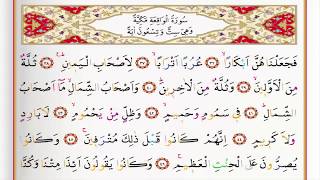 سُورَةُ الْوَاقِعَةِ مَكِّيَّةٌ
وَهِيَ سِتٌّ وَتِسْعُونَ آيَةً
فَجَعَلْنَاهُنَّ اَبْكَارًاۙ ﴿٣٦﴾ عُرُبًا اَتْرَابًاۙ ﴿٣٧﴾ لِاَصْحَابِ الْيَم۪ينِۜ ﴿٣٨﴾ ثُلَّةٌ
مِنَ الْاَوَّل۪ينَۙ ﴿٣٩﴾ وَثُلَّةٌ مِنَ الْاٰخِر۪ينَۜ ﴿٤٠﴾ وَاَصْحَابُ الشِّمَالِ مَٓا اَصْحَابُ
الشِّمَالِۜ ﴿٤١﴾ ف۪ي سَمُومٍ وَحَم۪يمٍۙ ﴿٤٢﴾ وَظِلٍّ مِنْ يَحْمُومٍۙ ﴿٤٣﴾ لَا بَارِدٍ
وَلَا كَر۪يمٍ ﴿٤٤﴾ اِنَّهُمْ كَانُوا قَبْلَ ذٰلِكَ مُتْرَف۪ينَۚ ﴿٤٥﴾ وَكَانُوا
يُصِرُّونَ عَلَى الْحِنْثِ الْعَظ۪يمِۚ ﴿٤٦﴾ وَكَانُوا يَقُولُونَ اَئِذَا مِتْنَا وَكُنَّا